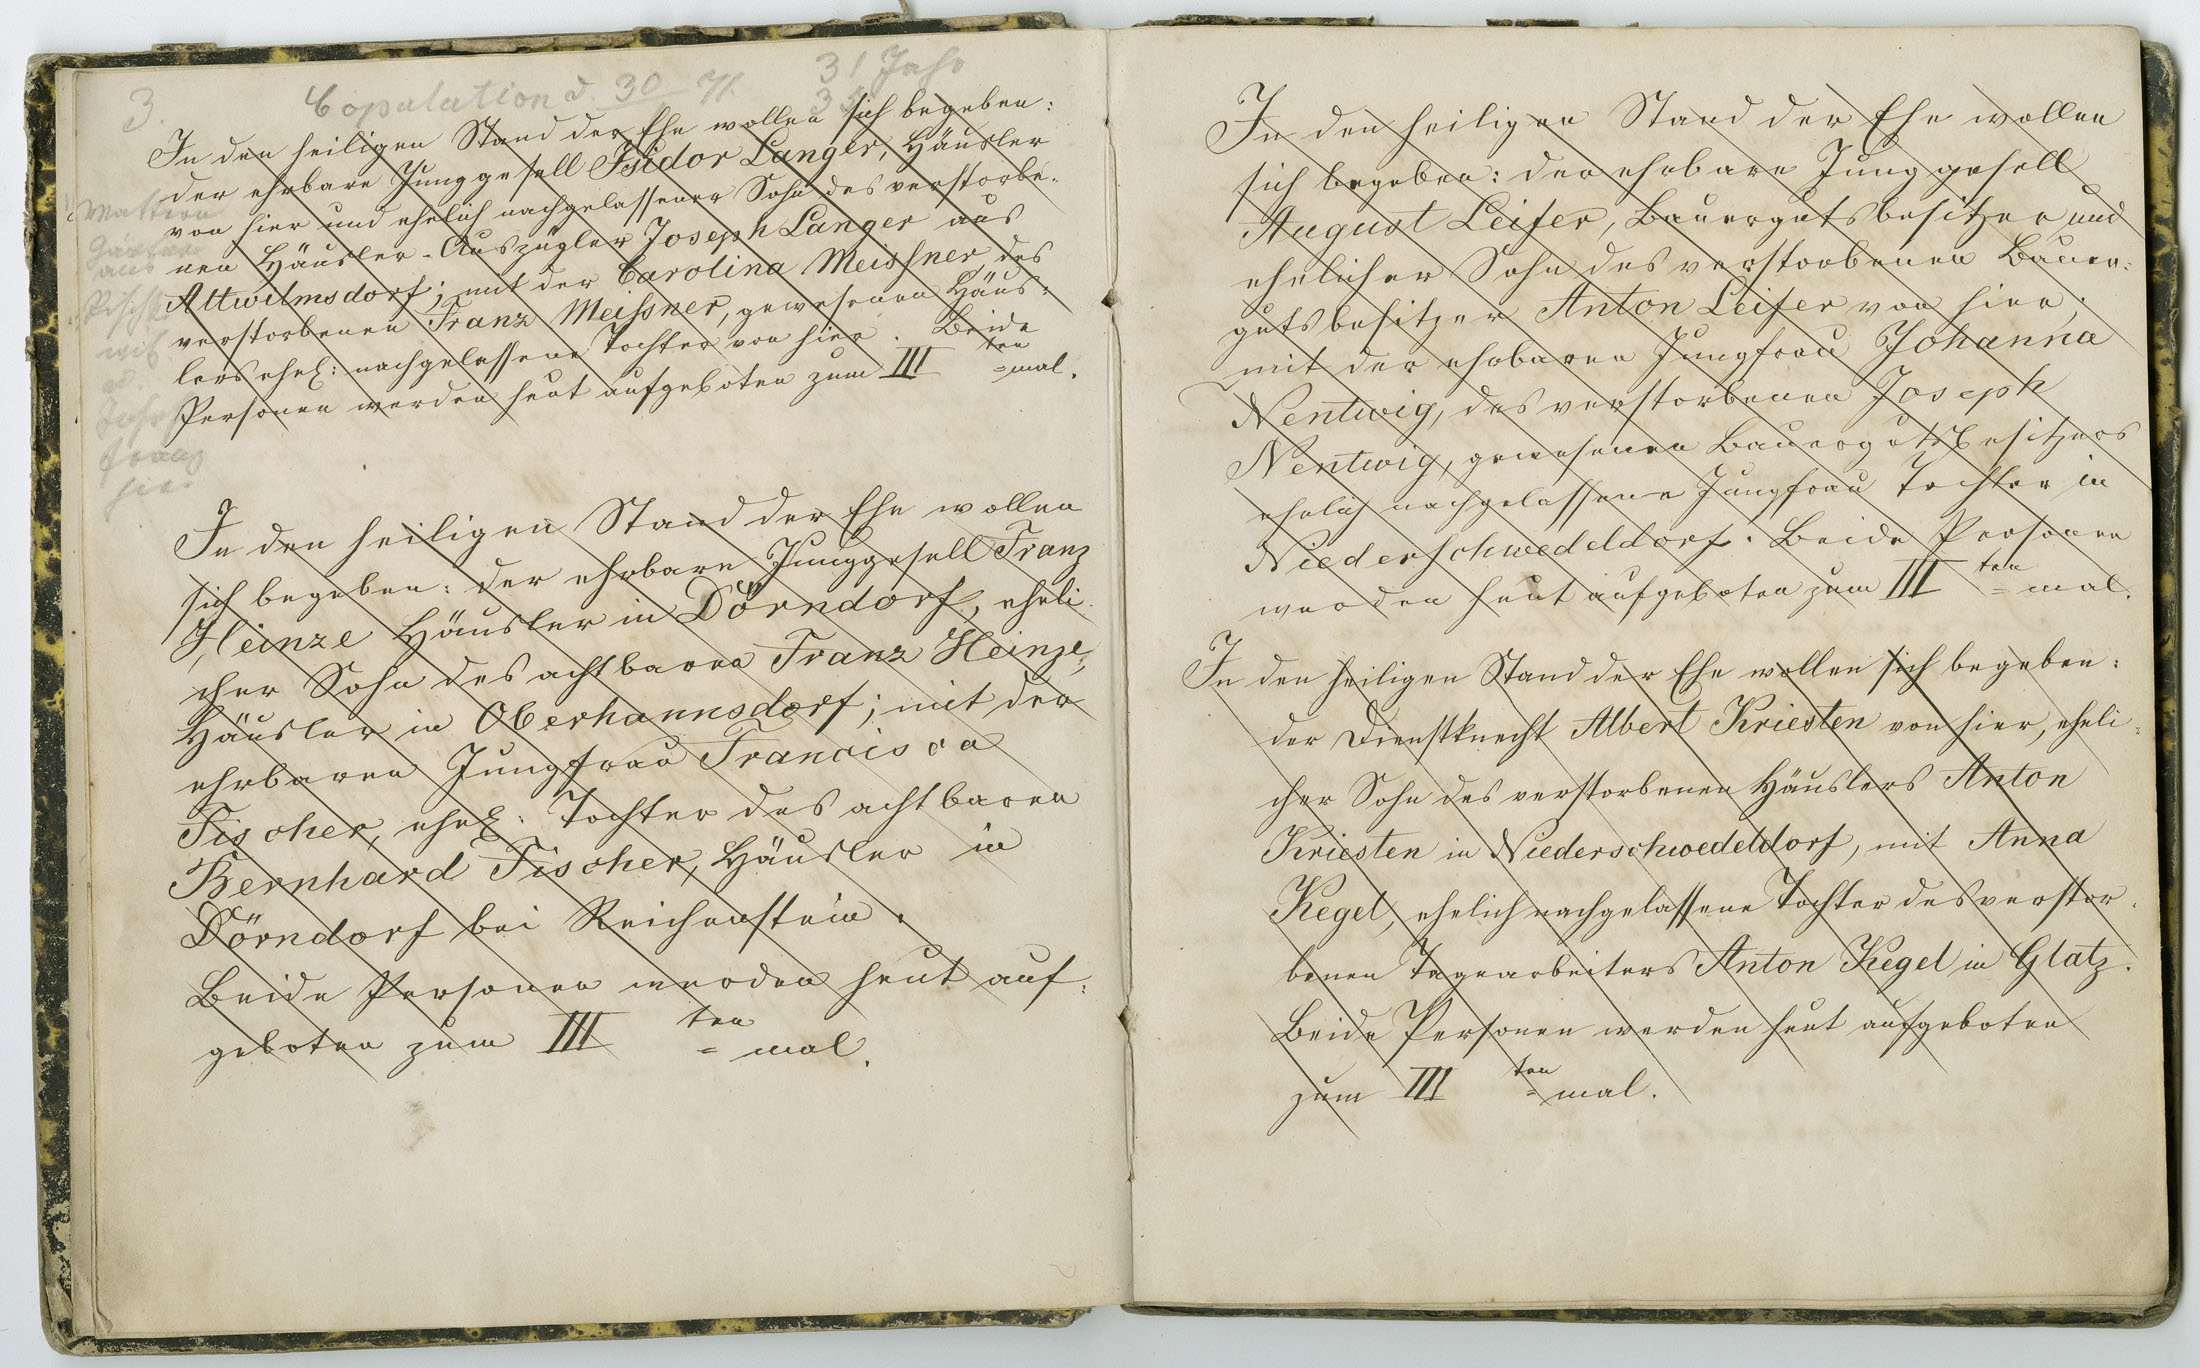 3. Copulation d. 30 31 Jahr
In den heiligen Stand der Ehe wollen sich begeben:
der ehrbare Junggesell Isidor Langer, Häusler
von hier und ehelich nachgelassener Sohn des verstorbe-
nen Häusler-Auszügler Joseph Langer aus
Altwilmsdorf; mit der Carolina Meissner des
verstorbenen Franz Meissner, gewesenen Häus-
lers ehel: nachgelassene Tochter von hier. Beide
Personen werden heut aufgeboten zum III ten =mal.
In den heiligen Stand der Ehe wollen
sich begeben: der ehrbare Junggesell Franz
Heinze Häusler in Dörndorf, eheli-
cher Sohn des achtbaren Franz Heinze,
Häusler in Oberhannsdorf; mit der
ehrbaren Jungfrau Francisca
Fischer, ehel: Tochter des achtbaren
Bernhard Fischer, Häusler in
Dörndorf bei Reichenstein.
Beide Personen werden heut auf-
geboten zum III ten = mal.
In den heiligen Stand der Ehe wollen
sich begeben: der ehrbare Junggesell
August Leifer, Bauergutsbesitzer und
ehelicher Sohn des verstorbenen Bauer-
gutsbesitzer Anton Leifer von hier;
mit der ehrbaren Jungfrau Johanna
Nentwig, des verstorbenen Joseph
Nentwig, gewesenen Bauergutsbesitzers
ehelich nachgelassene Jungfrau Tochter in
Niederschwedeldorf. Beide Personen
werden heut aufgeboten zum III ten = mal.
In den heiligen Stand der Ehe wollen sich begeben:
der Dienstknecht Albert Kriesten von hier, eheli-
cher Sohn des verstorbenen Häuslers Anton
Kriesten in Niederschwedeldorf, mit Anna
Kegel, ehelich nachgelassene Tochter des verstor-
benen Tagearbeiters Anton Kegel in Glatz.
Beide Personen werden heut aufgeboten
zum III ten = mal.